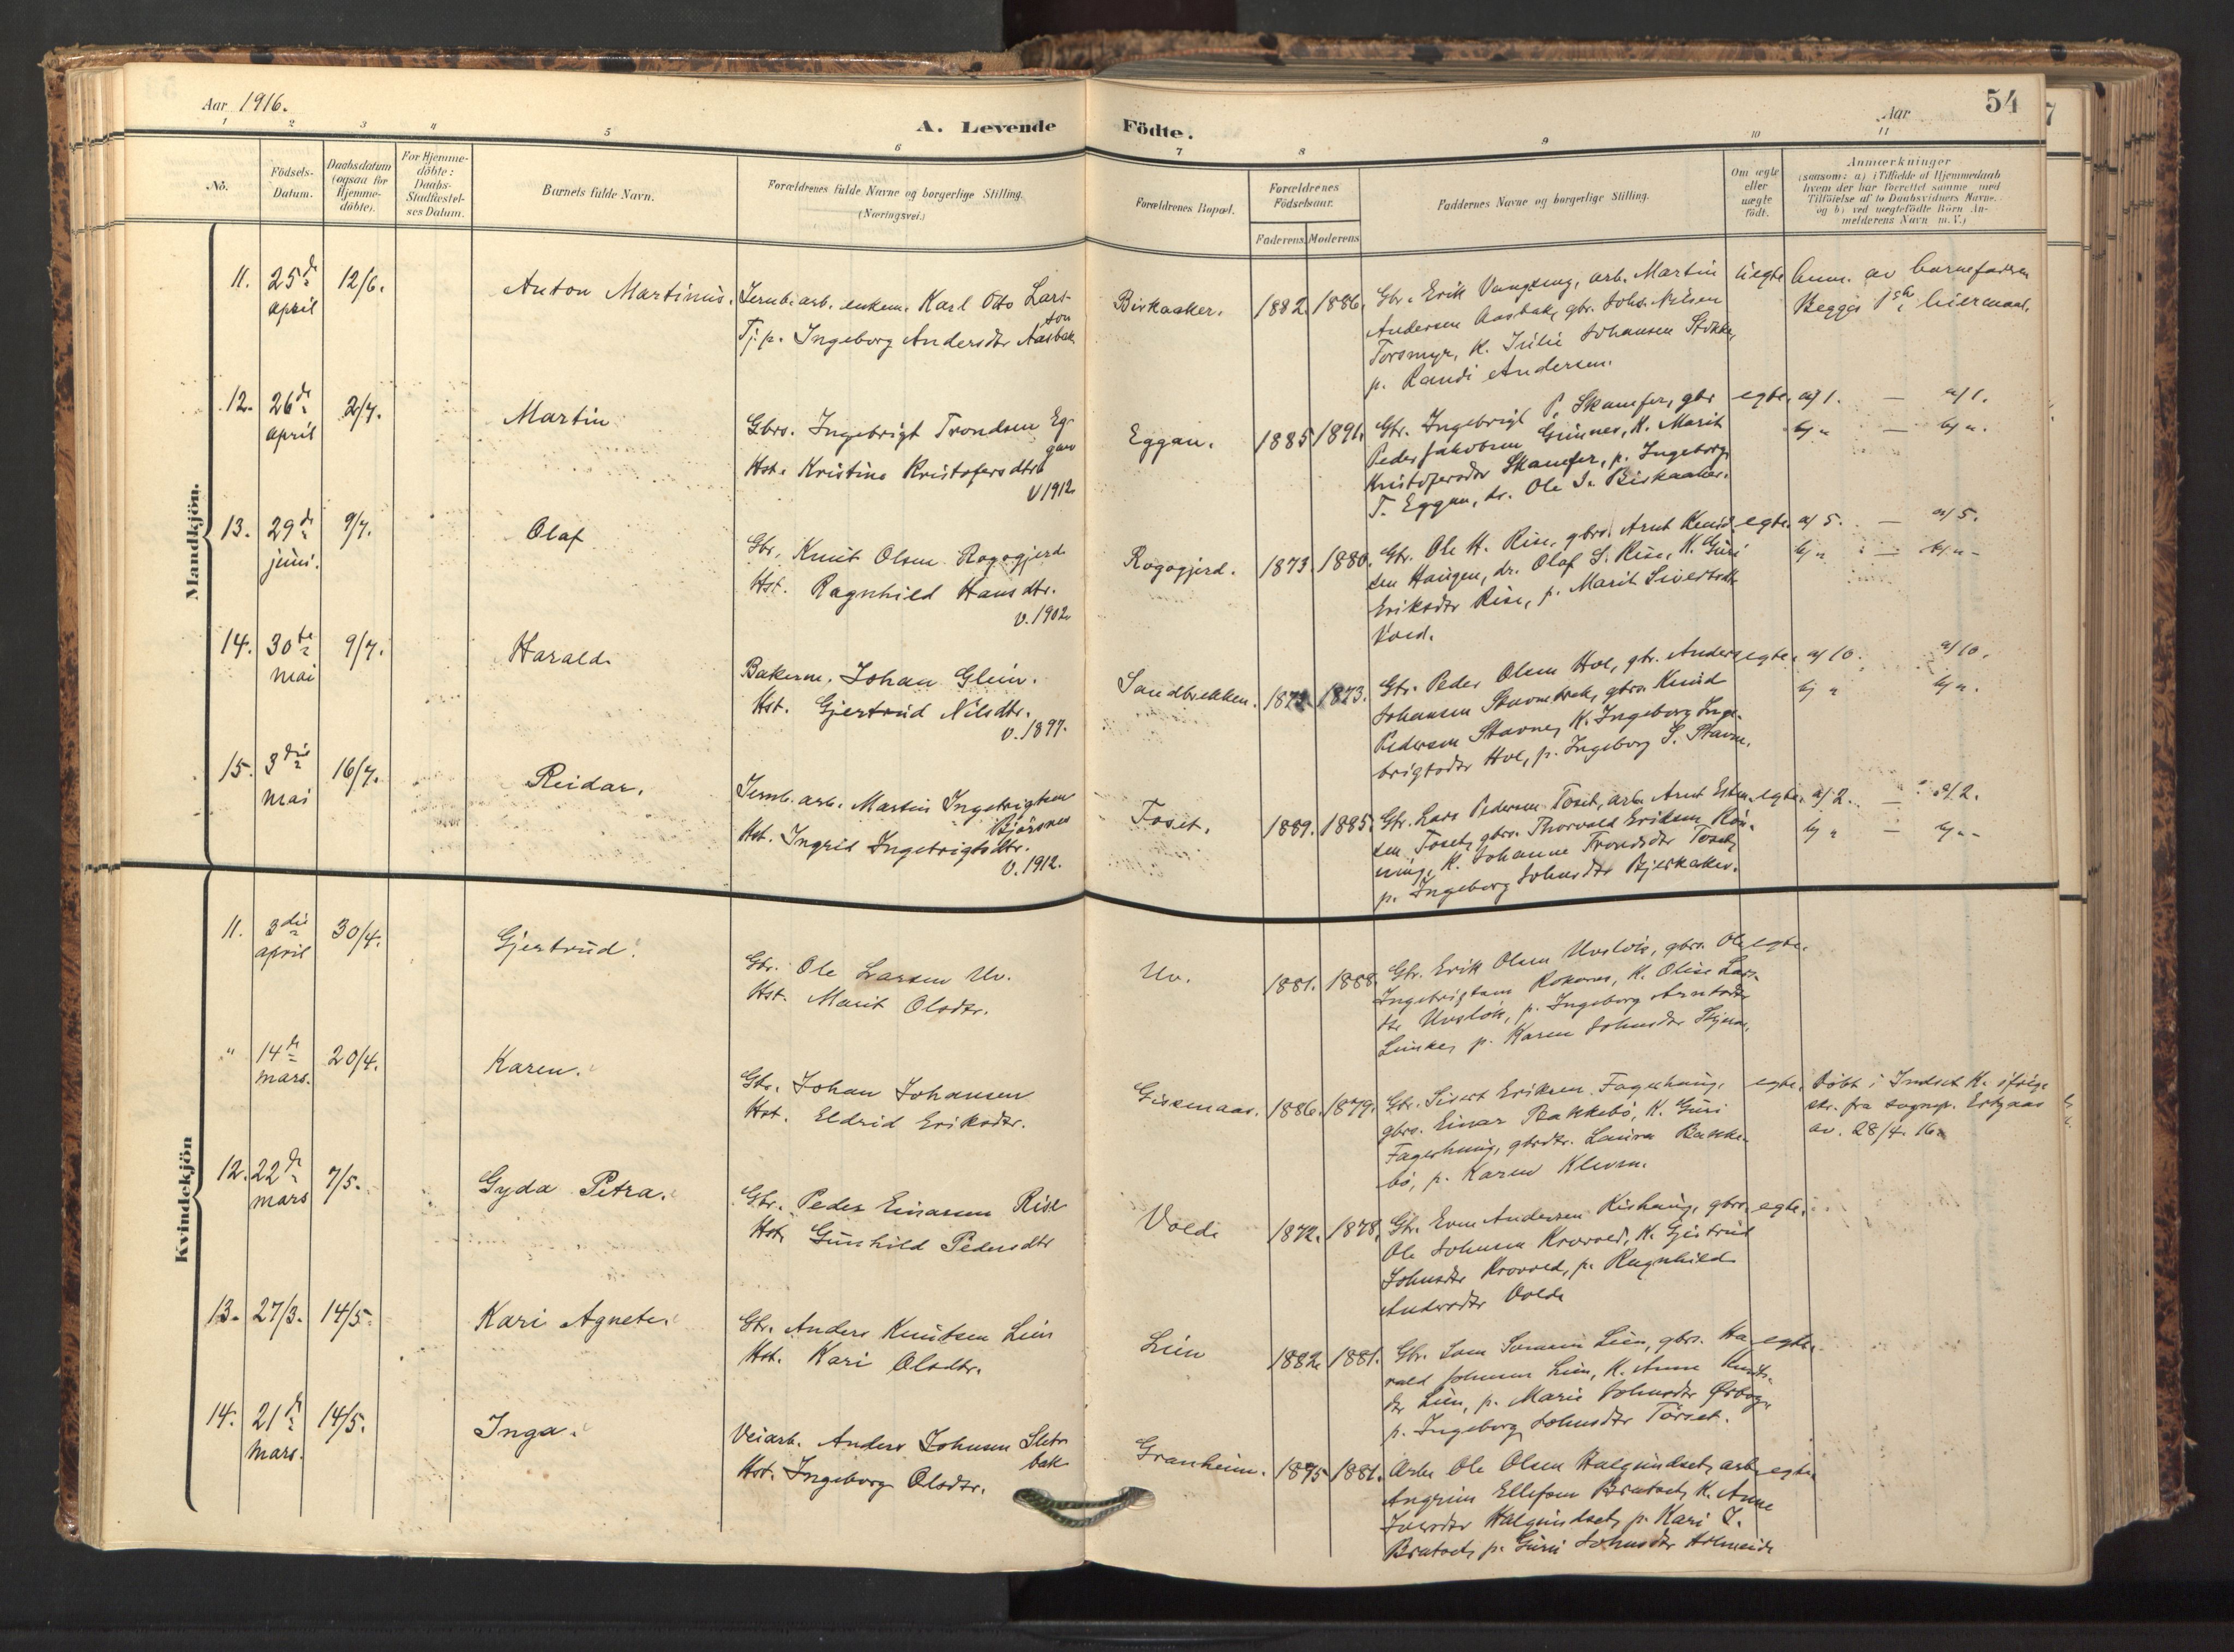 Aar 1916.
A. Levende Födte.
Aar
54
1 2 3 4 5 6 7 8 9 10 11
No.
Födsels-
Datum.
Daabsdatum
(ogsaa for
Hjemme-
döbte).
For Hjemme-
döbte:
Daabs-
Stadfæstel-
ses Datum.
Barnets fulde Navn.
Forældrenes fulde Navne og borgerlige Stilling.
(Næringsvei.)
Forældrenes Bopæl.
Forældrenes
Födselsaar.
Faderens. Moderens
Faddernes Navne og borgerlige Stilling.
Om ægte
eller
uægte
födt.
Anmærkninger
(saasom: a) i Tilfælde af Hjemmedaab
hvem der har forrettet samme med
Tilföielse af to Daabsvidners Navne,
og b) ved uægtefödte Börn An-
melderens Navn m. V.)
Mandkjön.
11. 25de april 12/6. Anton Martinus.
Jernb.arb. enkem. Karl Otto Lars-
son
Tj. p. Ingeborg Andersdtr Aasbak
Birkaaker. 1882. 1886.
Gbr. Erik Vangseng, arb. Martin
Andersen Aasbak, gbr. Johs. Nilsen
Torsmyr, K. Julie Johansen Stokke,
p. Randi Andersen.
uegte
Anm. av barnefaderen
Begges 1ste leiermaal.
12. 26de april 2/7. Martin
Gbrs. Ingebrigt Trondsen Eg-
gan
Hst. Kristine Kristofersdtr
v 1912
Eggan. 1885 1891.
Gbr. Ingebrigt P. Skamfer, gbr
Peder Jakobsen Gunnes, K. Marit
Kristofersdtr Skamfer, p. Ingeborg
T. Eggan, dr. Ole I. Birkaaker.
egte. a/ 1. — a/ 1.
b/ " — b/ ".
13. 29de juni. 9/7. Olaf
Gbr. Knut Olsen Rogogjerd
Hst. Ragnhild Hansdtr.
v. 1902
Rogogjerd. 1873. 1880.
Gbr. Ole H. Rise, gbrs. Arnt Knud-
sen Haugen, dr. Olaf S. Rise, K. Guri
Eriksdtr Rise, p. Marit Sivertsdtr
Vold.
egte. a/ 5. — a/ 5.
b/ " — b/ " -
14. 30te mai 9/7. Harald.
Bakerm. Johan Glein.
Hst. Gjertrud Nilsdtr.
v. 1897.
Sandbrekken. 1873. 1873.
Gbr. Peder Olsen Hoe, gbr. Anders
Johansen Stavnebrek, gbrs. Knud
Pedersen Stavne, K. Ingeborg Inge-
brigtsdtr Hoe, p. Ingeborg S. Stavne.
egte. a/ 10. a/ 10.
b/ " b/ ".
15. 3die mai 16/7. Reidar.
Jernb.arb. Martin Ingebrigtsen
Bjørsnes
Hst. Ingrid Ingebrigtsdtr.
v. 1912.
Toset. 1889. 1885.
Gbr. Lars Pedersen Toset, arb. Arnt Esten-
sen Toset, gbrs. Thorvald Eriksen Røn-
ning, K. Johanne Trondsdtr Toset,
p. Ingeborg Johnsdtr Bjerkaker.
egte. a/ 2. — a/ 2.
b/ " — b/ " -
Kvindekjön
11. 3die april 30/4. Gjertrud.
Gbr. Ole Larsen Uv.
Hst. Marit Olsdtr.
Uv. 1881. 1888.
Gbr. Erik Olsen Uvsløk, gbrs. Ole
Ingebrigtsen Rokones, K. Olise Lars-
dtr Uvsløk, p. Ingeborg Arntsdtr
p. Karen Johnsdtr
egte.
" 14de mars. 20/4. Karen.
Gbr. Johan Johansen
Hst. Eldrid Eriksdtr.
Gissmaas. 1886. 1879.
Gbr. Sivert Eriksen Fagerhaug,
gbrs. Einar Bakkebø, K. Guri
Fagerhaug, gbrdtr. Laura Bakke-
bø, p. Karen Kleven.
egte.
Døbt i Indset K. ifølge
skr. fra sognep. Ertzaas
av. 28/4. 16.
12. 22de mars 7/5. Gyda Petra.
Gbr. Peder Einarsen Rise
Hst. Gunhild Pedersdtr
Volde 1872. 1878.
Gbr. Even Andersen Kishaug, gbrs.
Ole Johnsen Krovold, K. Gjertrud
Johnsdtr Krovold, p. Ragnhild
Andersdtr Volde
egte.
13. 27/3. 14/5. Kari Agnete.
Gbr. Anders Knutsen Lien
Hst. Kari Olsdtr.
Lien 1882. 1881.
Gbr. Lien, gbrs. Ha-
rald Johnsen Lien, K. Anne Knuts-
dtr Lien, p. Marie Johnsdtr
p. Ingeborg Johnsdtr Torset.
egte.
14. 21de mars. 14/5. Inga.
Veiarb. Anders Johnsen Slet-
bak
Hst. Ingeborg Olsdtr.
Granheim. 1875 1881.
Arb. Ole Olsen Halgundset, arb.
Angrim Ellefsen Bratset, K. Anne
Iversdtr Halgundset, p. Kari I.
Bratset, p. Guri Johnsdtr
egte.